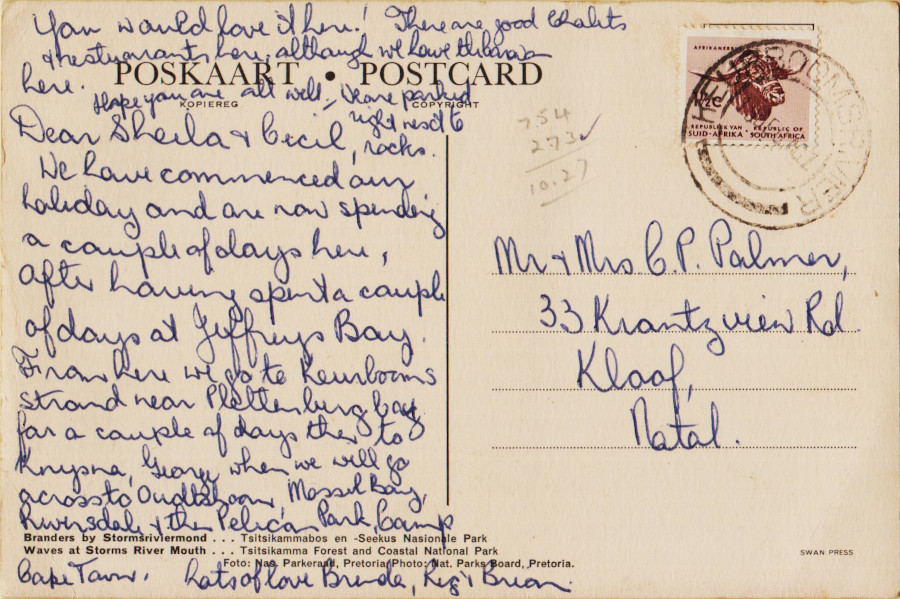 You would love it here! There are good Chalets
& restuarants here, although we have the caravan
here.
POSKAART • POSTCARD
KOPIEREG COPYRIGHT
Hope you are all well, We are parked
right next to
rocks.
Dear Sheila & Cecil,
We have commenced our
holiday and are now spending
a couple of days here,
after having spent a couple
of days at Jeffreys Bay.
From here we go to Keurbooms
strand near Plettenburg bay
for a couple of days then to
Knysna, George when we will go
across to Oudtshoorn, Mossel Bay,
Riversdale & then Pelican Park, Camp
Cape Town. Lots of love Brenda, Reg & Brian.
Branders by Stormsriviermond . . . Tsitsikammabos en -Seekus Nasionale Park
Waves at Storms River Mouth . . . Tsitsikamma Forest and Coastal National Park
Foto: Nas. Parkeraad, Pretoria/Photo: Nat. Parks Board, Pretoria.
754
273
10.27
REPUBLIEK VAN SUID-AFRIKA
REPUBLIC OF SOUTH AFRICA
KEURBOOMSRIVIER
Mr & Mrs C. P. Palmer,
33 Krantzview Rd
Kloof,
Natal.
SWAN PRESS